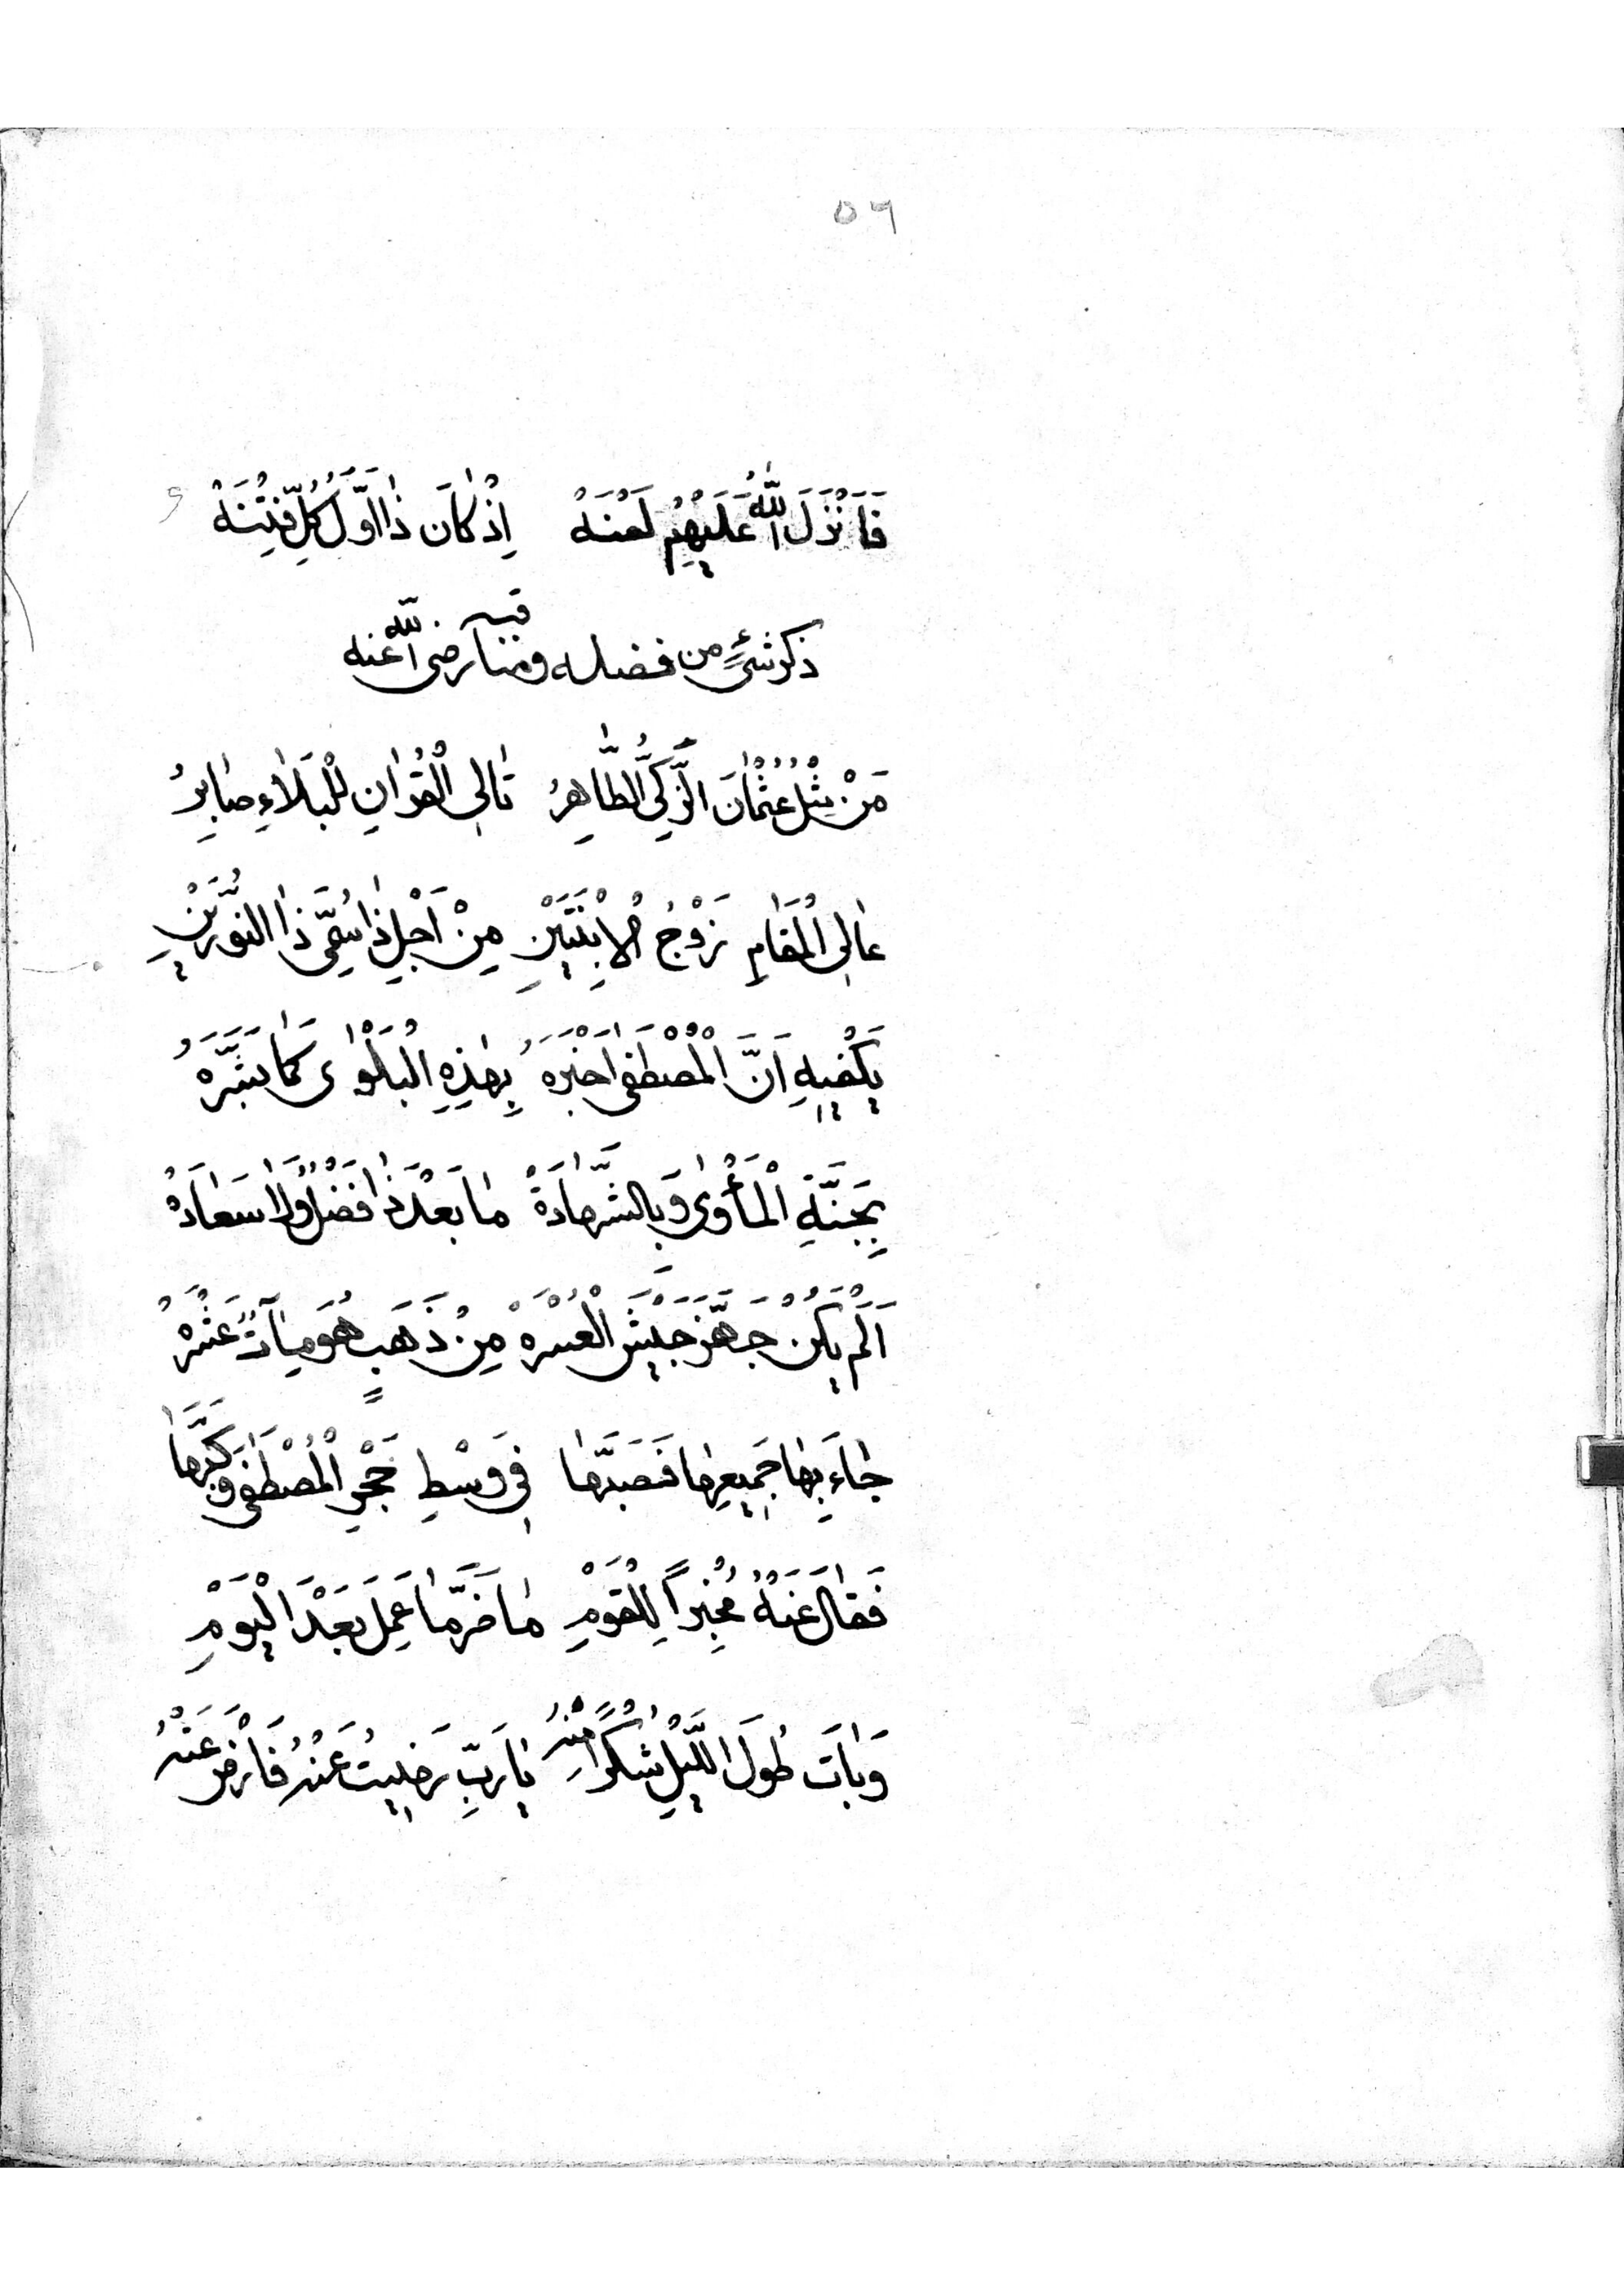 ٥٦
فَاَنْزَلَ اللّٰهُ عَلَيْهِمْ لَعْنَهْ اِذْ كَانَ ذَا اَوَّلَ كُلِّ فِتْنَهْ
ذكر شيءٍ من فضله ومناقبه رضى اللّه عنه
مَنْ مِثْلُ عُثْمَانَ الزَّكِيُّ الطَّاهِرُ تَالِي الْقُرْاٰنِ لِلْبَلَاءِ صَابِرُ
عَالِي الْمَقَامِ زَوْجُ الْاِبْنَتَيْنِ مِنْ اَجْلِ ذَا سُمِّيَ ذَا النُّوْرَيْنِ
يَكْفِيهِ اَنَّ الْمُصْطَفٰى اَخْبَرَهُ بِهٰذِهِ الْبَلْوٰى كَمَا بَشَّرَهُ
بِجَنَّةِ الْمَأْوٰى وَبِالشَّهَادَةْ مَا بَعْدَ ذَا فَضْلٌ وَلَا سَعَادَهْ
اَلَمْ يَكُنْ جَهَّزَ جَيْشَ الْعُسْرَهْ مِنْ ذَهَبٍ هُوَ مِيآتٌ عَشْرَهْ
جَاءَ بِهَا جَمِيعِهَا فَصَبَّهَا فِي وَسْطِ حَجْرِ الْمُصْطَفٰى وَكَبَّهَا
فَقَالَ عَنْهُ مُخْبِراً لِلْقَوْمِ مَا ضَرَّ مَا عَمِلَ بَعْدَ الْيَوْمِ
وَبَاتَ طُولَ اللَّيْلِ شُكْراً مِنْهُ يَا رَبِّ رَضِيتُ عَنْهُ فَارْضَ عَنْهُ